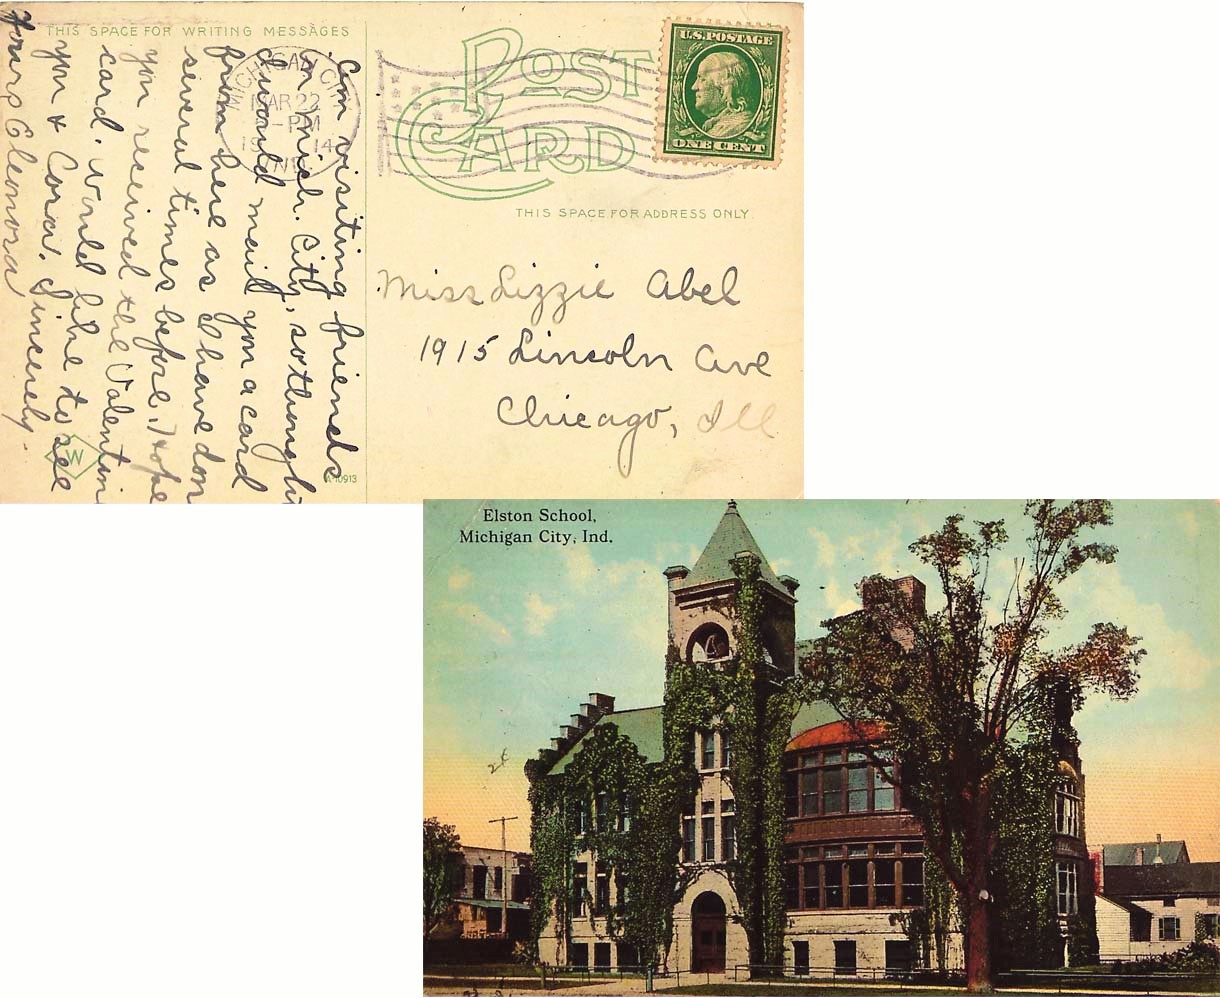 THIS SPACE FOR WRITING MESSAGES
am visiting friends
in Mich. City, so though
I would mail you a card
from here as I have don
several times before. I hope
you received the Valentine
card. would like to see
you & Cora. Sincerely.
Yours Eleonora
MICHIGAN CITY
MAR 22
-PM
1914
IND.
POST
CARD
U.S. POSTAGE
ONE CENT
THIS SPACE FOR ADDRESS ONLY.
Miss Lizzie Abel
1915 Lincoln Ave
Chicago, Ill
W
A-10913
Elston School,
Michigan City, Ind.